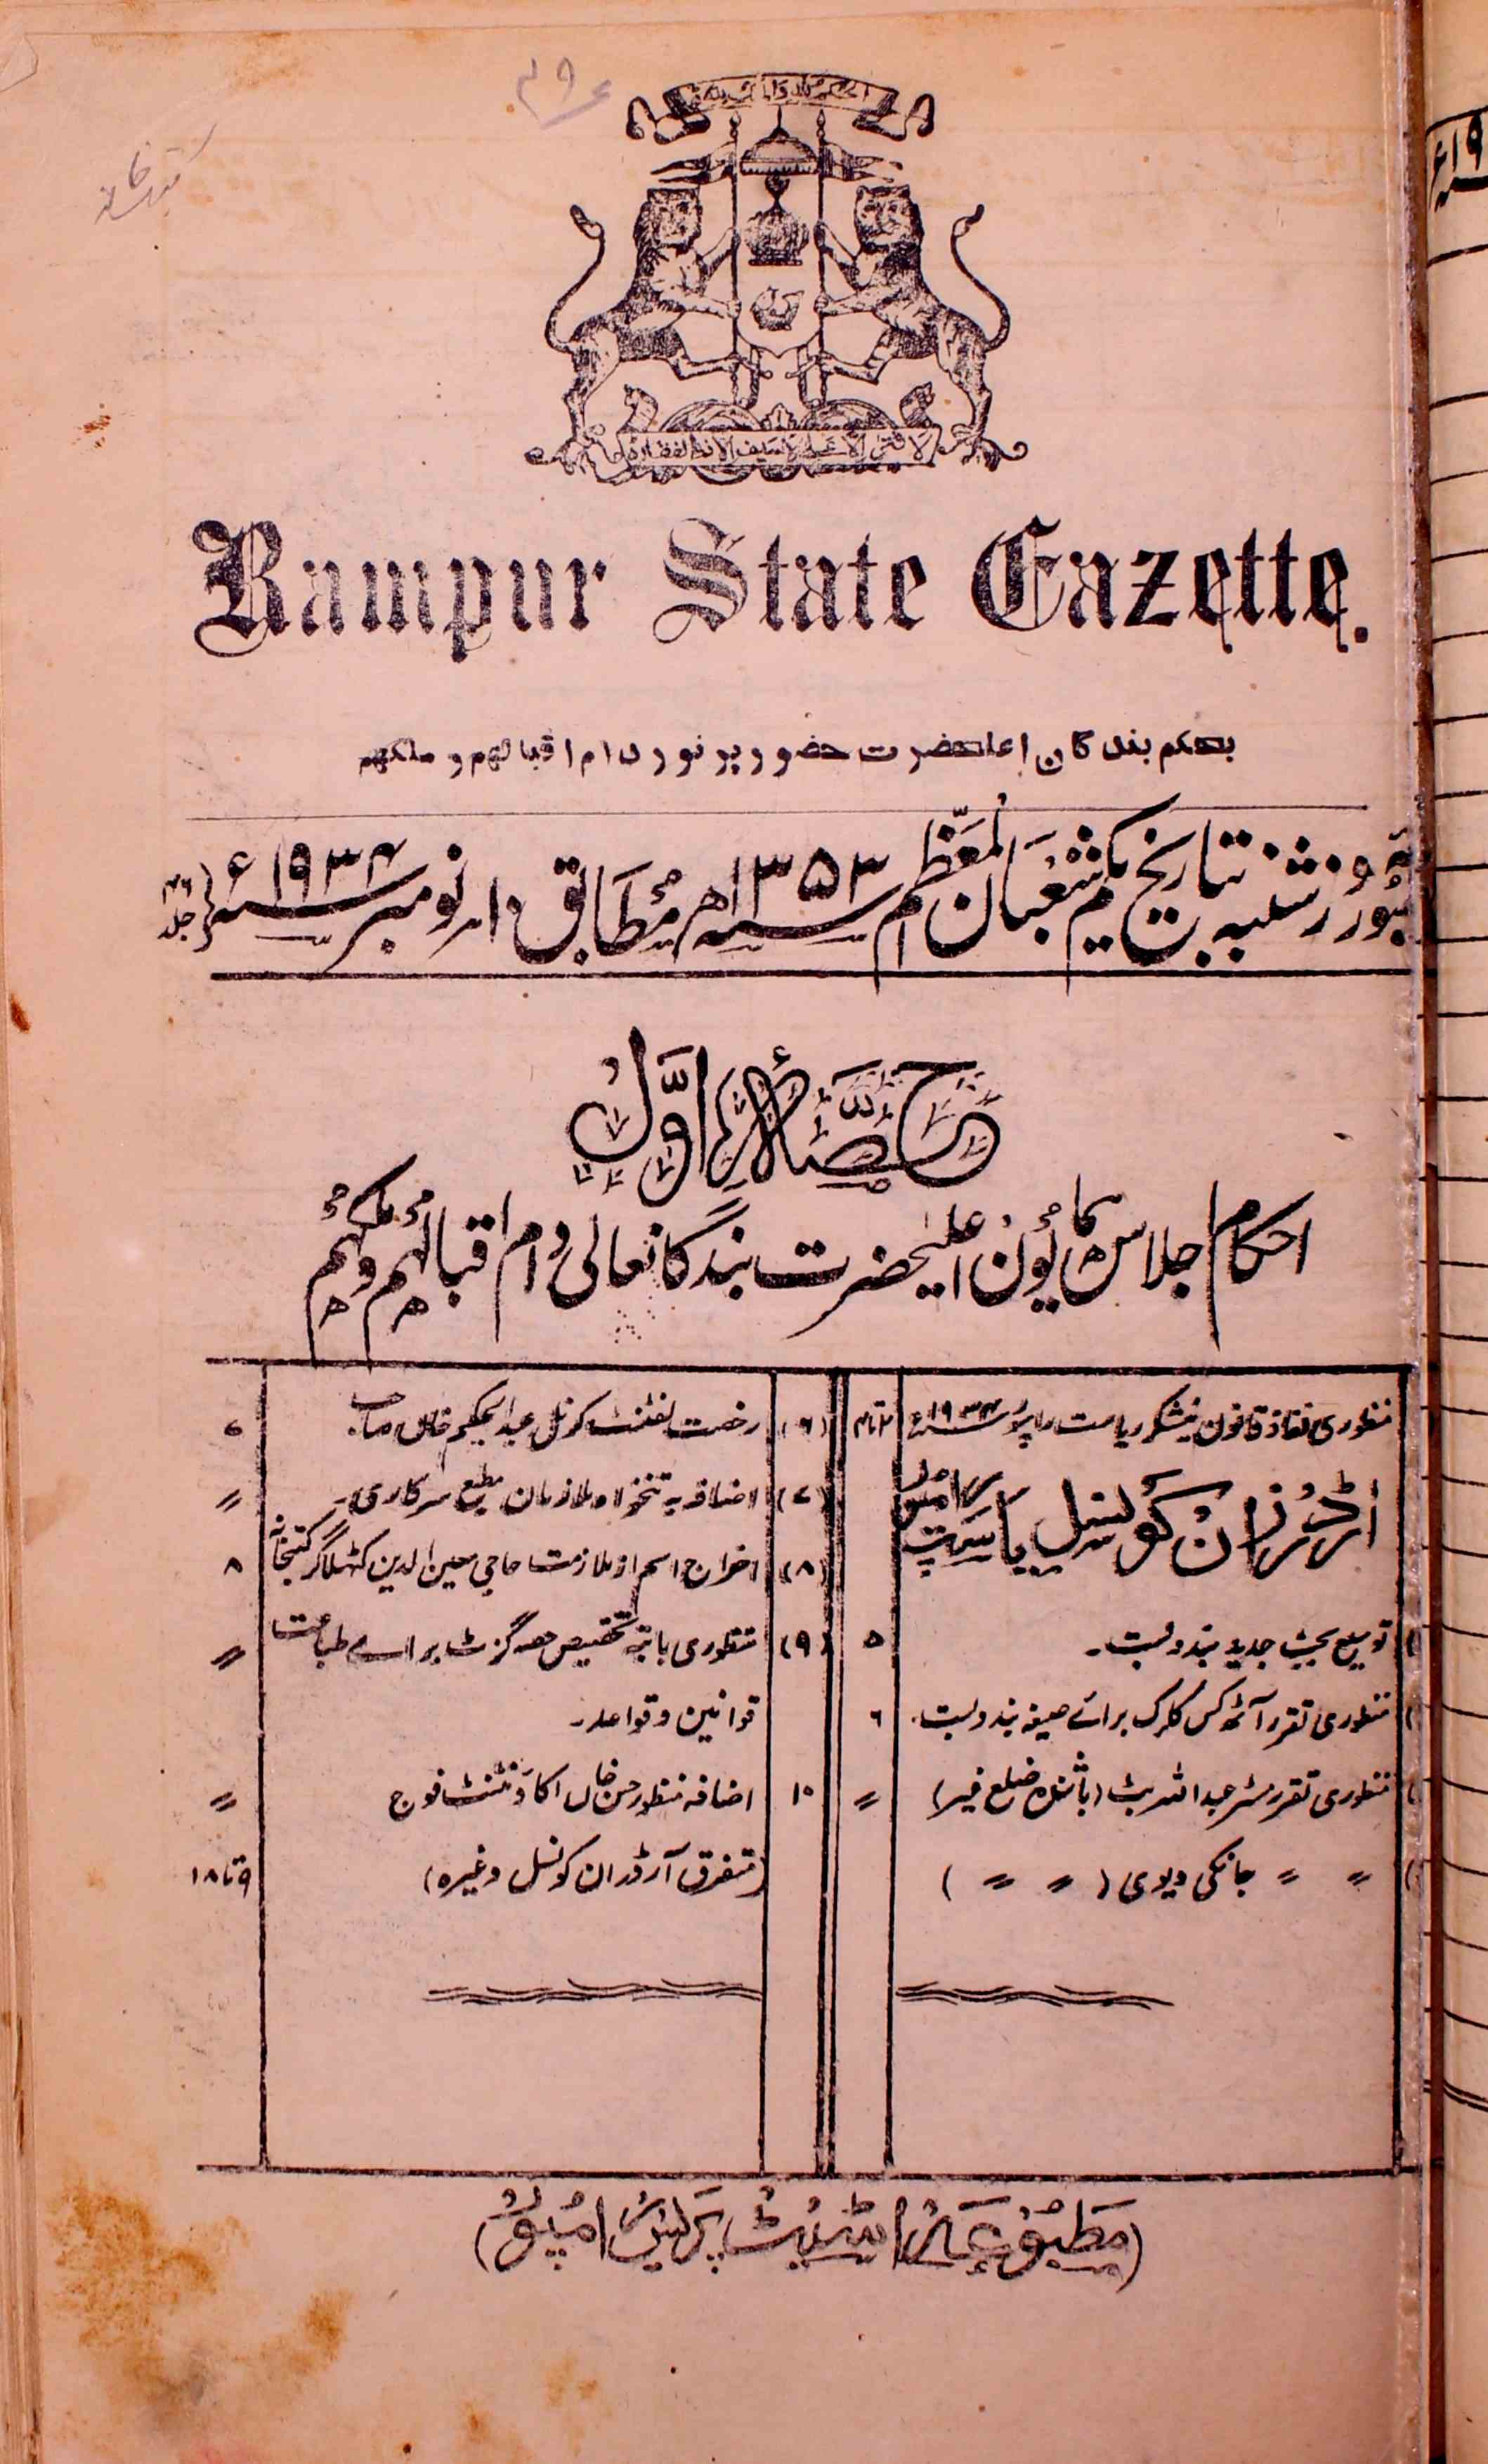 الحکم للہ والملک للہ
لا فتی الا علی لا سیف الا ذوالفقار
Rampur State Gazette.
بحکم بندگان اعلحضرت حضور پرنور دام اقبالهم و ملکهم
بروز شنبہ بتاریخ یکم شعبان المعظم ۱۳۵۳ھ مطابق ۱۰ نومبر ۱۹۳۴ء جلد ۴۶
حصہ اول
احکام اجلاس ہمایون اعلیحضرت بندگانعالی دام اقبالہم و ملکہم
منظوری نفاذ قانون نیشکر ریاست رامپور ۱۹۳۴ء
آرڈرز ان کونسل ریاست رامپور
توسیع بجٹ جدید بندوبست۔ ۵
منظوری تقرر آٹھ کس کلرک برائے صیغہ بندوبست۔ ۶
منظوری تقرر مسٹر عبداللہ بٹ (باشندہ ضلع غیر)〃
〃 〃 جانکی دیوی (〃 〃)
(۶) رخصت لفٹننٹ کرنل عبدالحکیم خاں صاحب۔ ۷
(۷) اضافہ تنخواہ ملازمان مطبع سرکاری۔ 〃
(۸) اخراج اسم از ملازمت حاجی معین الدین کٹیلاگر کتبخانہ ۸
(۹) منظوری بابتہ تخصیص حصہ گزٹ برائے طباعت 〃
قوانین و قواعد۔
۱۰ اضافہ منظور حسن خاں اکاؤنٹنٹ فوج 〃
(متفرق آرڈر ان کونسل وغیرہ) ۹ تا ۱۸
(مطبوعہ اسٹیٹ پریس رامپور)